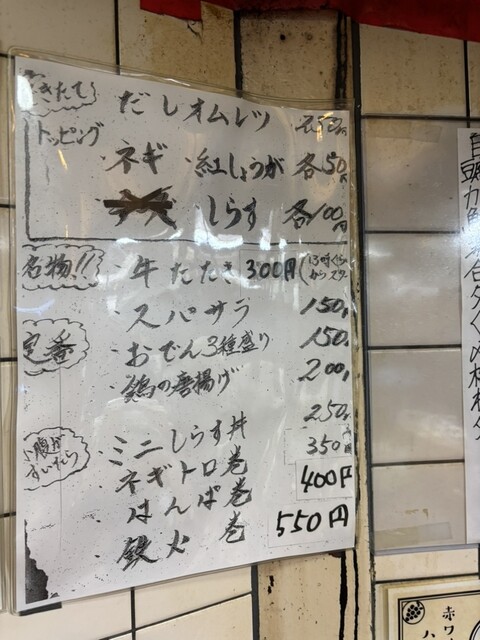 だしオムレツ 250円
トッピング
・ネギ ・紅しょうが 各50円
・しらす 各100円
名物!!
・牛たたき 300円
・スパサラ 150円
定番
・おでん3種盛り 150円
・鶏の唐揚げ 200円
小腹が
すいたら
・ミニしらす丼 250円
・ネギトロ巻 350円
・はんぱ巻 400円
・鉄火巻 550円
赤ワ